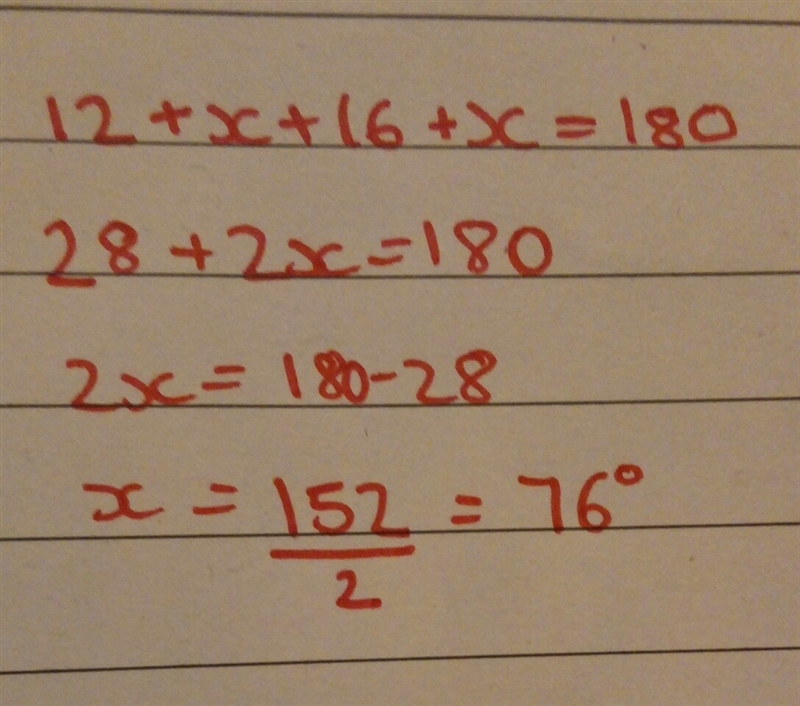 12 + x + 16 + x = 180
28 + 2x = 180
2x = 180 - 28
x = 152/2 = 76°